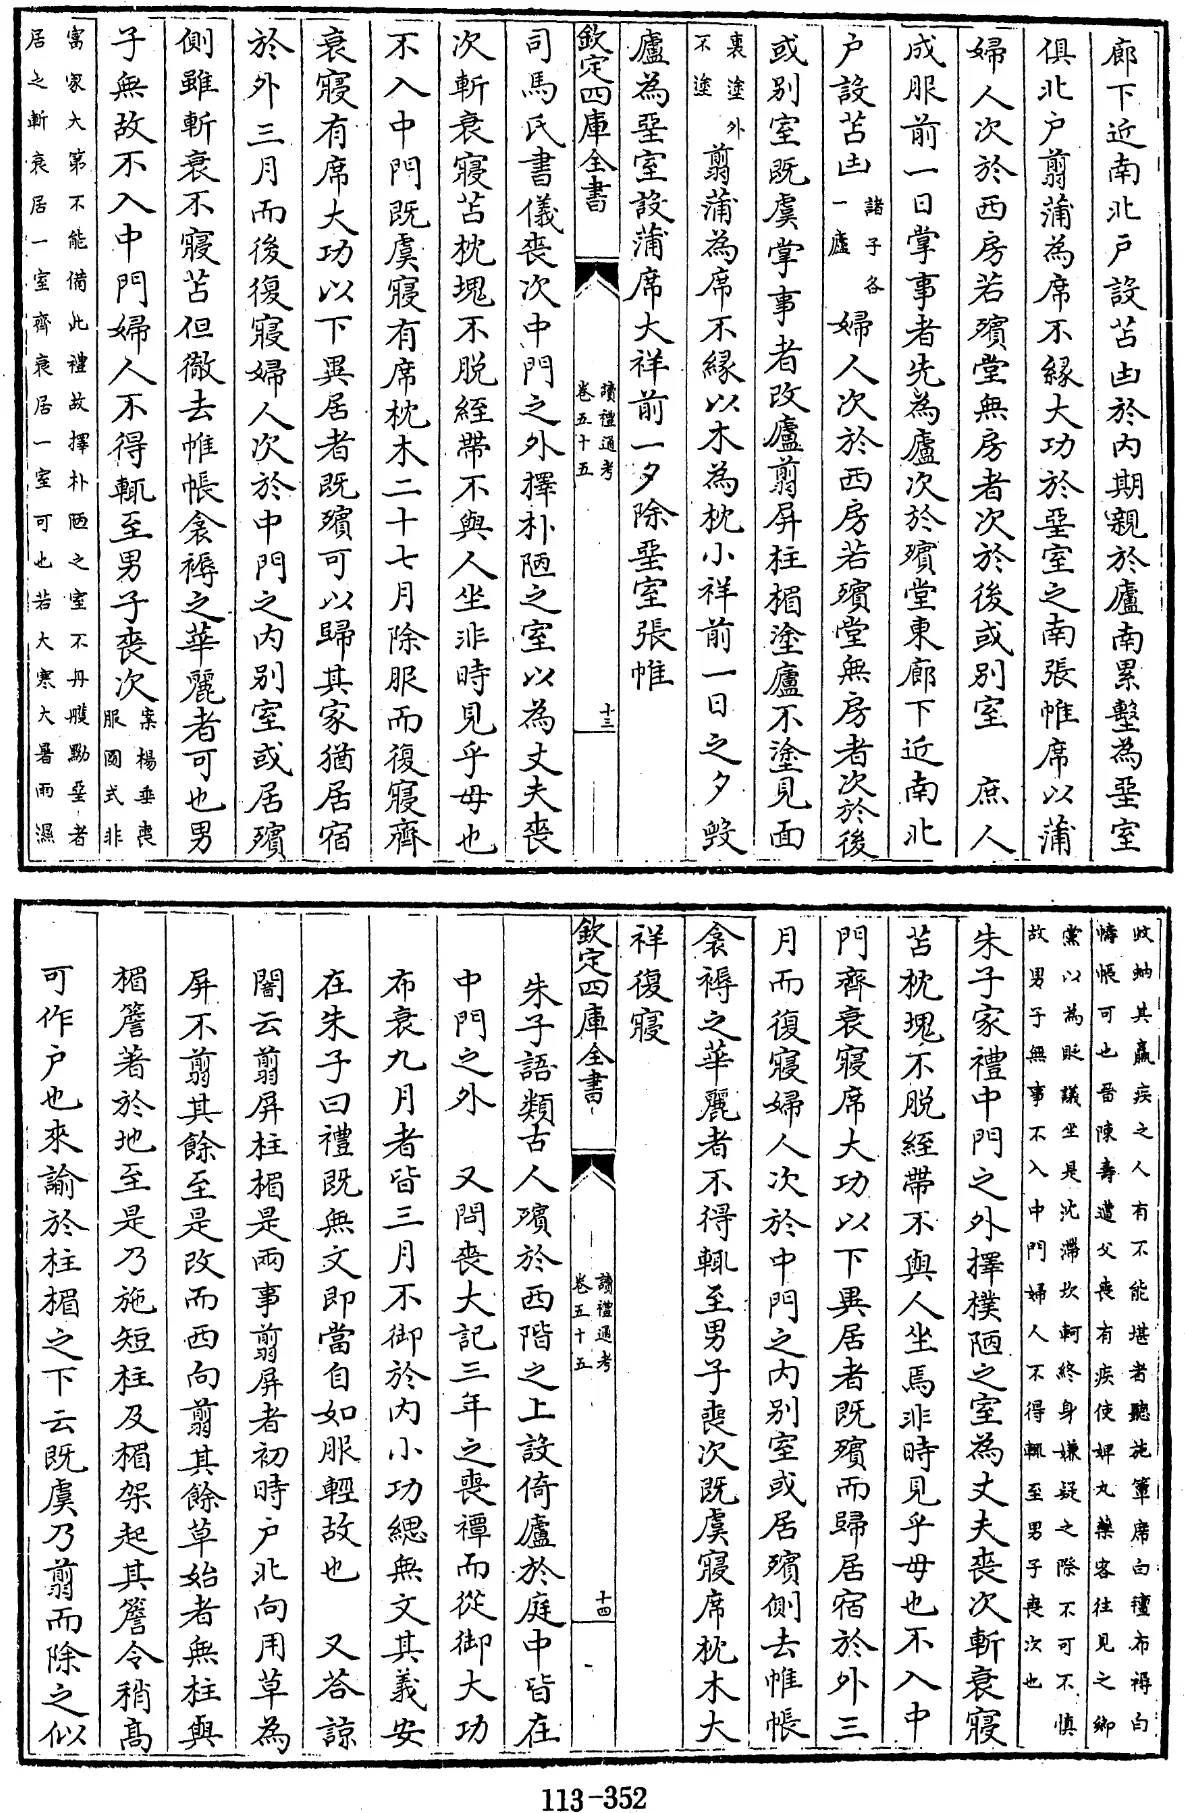 廊下近南北戸設苫凷於内期親於廬南累墼為堊室
俱北户翦蒲為席不緣大功於堊室之南張帷席以蒲
婦人次於西房若殯堂無房者次於後或别室　庶人
成服前一日掌事者先為廬次於殯堂東廊下近南北
户設苫凷諸子各一廬婦人次於西房若殯堂無房者次於後
或别室既虞掌事者改廬翦屏柱楣塗廬不塗見面
裏塗外不塗翦蒲為席不緣以木為枕小祥前一日之夕毀
廬為堊室設蒲席大祥前一夕除堊室張帷
欽定四庫全書
讀禮通考
卷五十五
十三
司馬氏書儀喪次中門之外擇朴陋之室以為丈夫喪
次斬衰寢苫枕塊不脱絰帶不與人坐非時見乎母也
不入中門既虞寢有席枕木二十七月除服而復寢齊
衰寢有席大功以下異居者既殯可以歸其家猶居宿
於外三月而後復寢婦人次於中門之内别室或居殯
側雖斬衰不寢苫但徹去帷帳衾褥之華麗者可也男
子無故不入中門婦人不得輒至男子喪次案楊垂喪服圖式非
富家大第不能備此禮故擇朴陋之室不丹雘黝堊者
居之斬衰居一室齊衰居一室可也若大寒大暑雨濕
蚊蚋其羸疾之人有不能堪者聽施簟席白氊布褥白
幬帳可也晉陳壽遭父喪有疾使婢丸藥客往見之鄉
黨以為貶議坐是沈滯坎軻終身嫌疑之際不可不慎
故男子無事不入中門婦人不得輒至男子喪次也
朱子家禮中門之外擇樸陋之室為丈夫喪次斬衰寢
苫枕塊不脱絰帶不與人坐焉非時見乎母也不入中
門齊衰寢席大功以下異居者既殯而歸居宿於外三
月而復寢婦人次於中門之内别室或居殯側去帷帳
衾褥之華麗者不得輒至男子喪次既虞寢席枕木大
祥復寢
欽定四庫全書
讀禮通考
卷五十五
十四
朱子語類古人殯於西階之上設倚廬於庭中皆在
中門之外　又問喪大記三年之喪禫而從御大功
布衰九月者皆三月不御於内小功緦無文其義安
在朱子曰禮既無文即當自如服輕故也　又答諒
闇云翦屏柱楣是兩事翦屏者初時户北向用草為
屏不翦其餘至是改而西向翦其餘草始者無柱與
楣簷著於地至是乃施短柱及楣架起其簷令稍高
可作户也來諭於柱楣之下云既虞乃翦而除之似
113-352